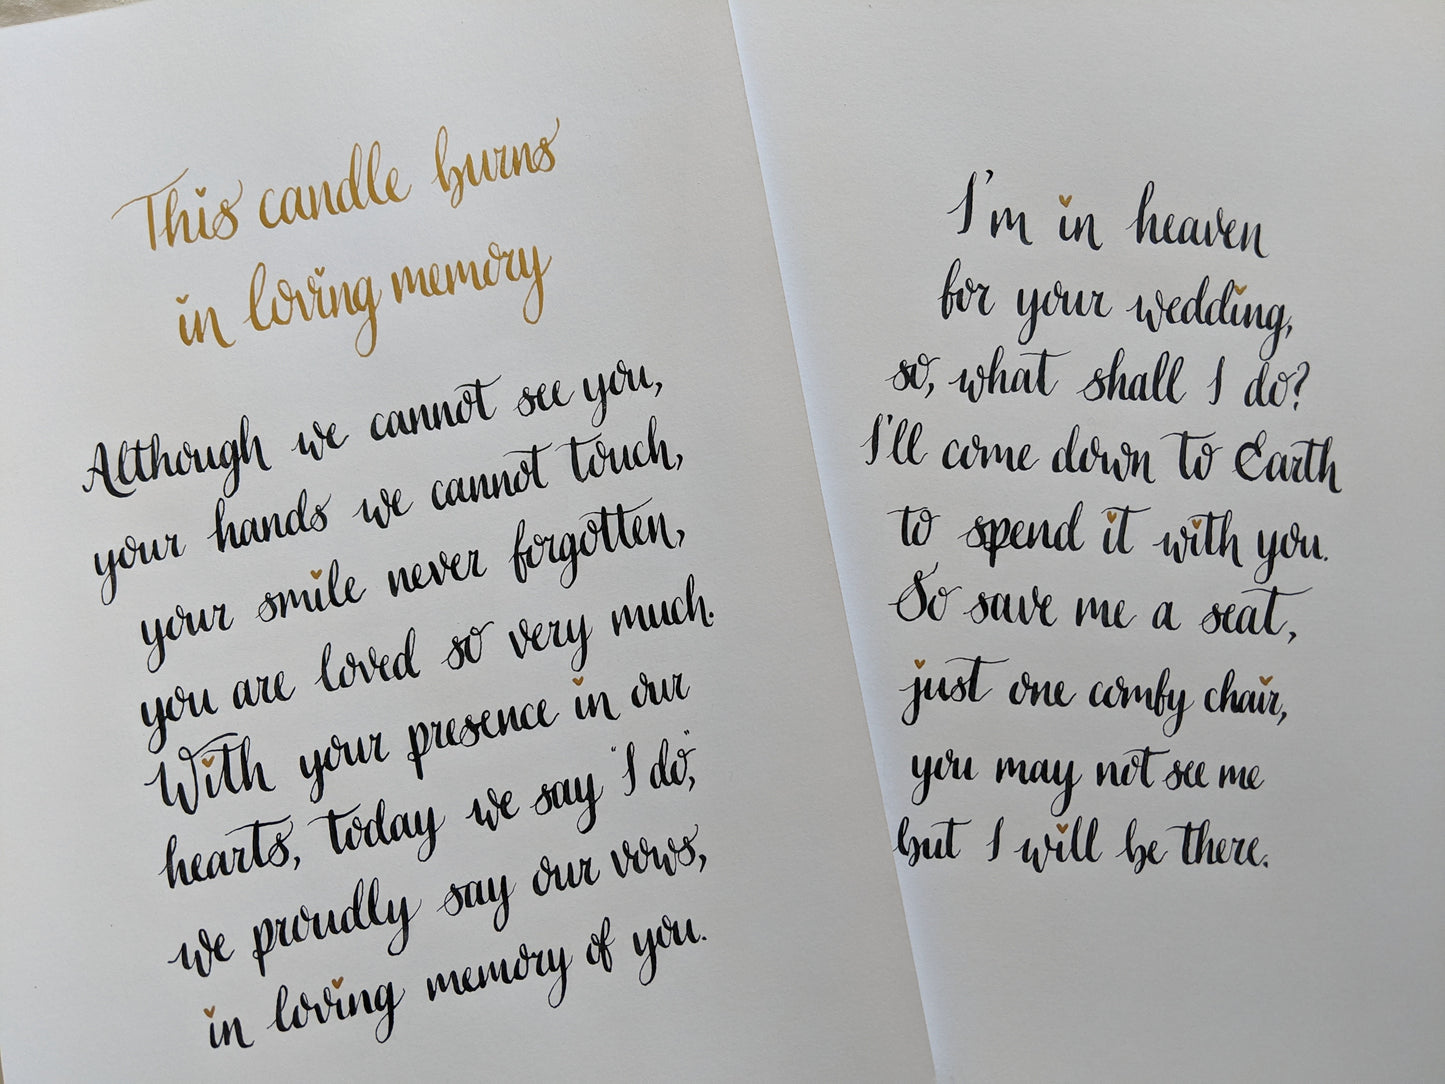 This candle burns
in loving memory
Although we cannot see you,
your hands we cannot touch,
your smile never forgotten,
you are loved so very much.
With your presence in our
hearts, today we say "I do",
we proudly say our vows,
in loving memory of you.
I'm in heaven
for your wedding,
so, what shall I do?
I'll come down to Earth
to spend it with you.
So save me a seat,
just one comfy chair,
you may not see me
but I will be there.